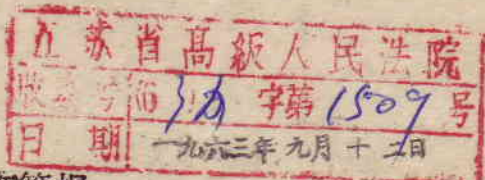 江苏省高級人民法院
收文 字第1509号
日期 一九六三年九月十二日